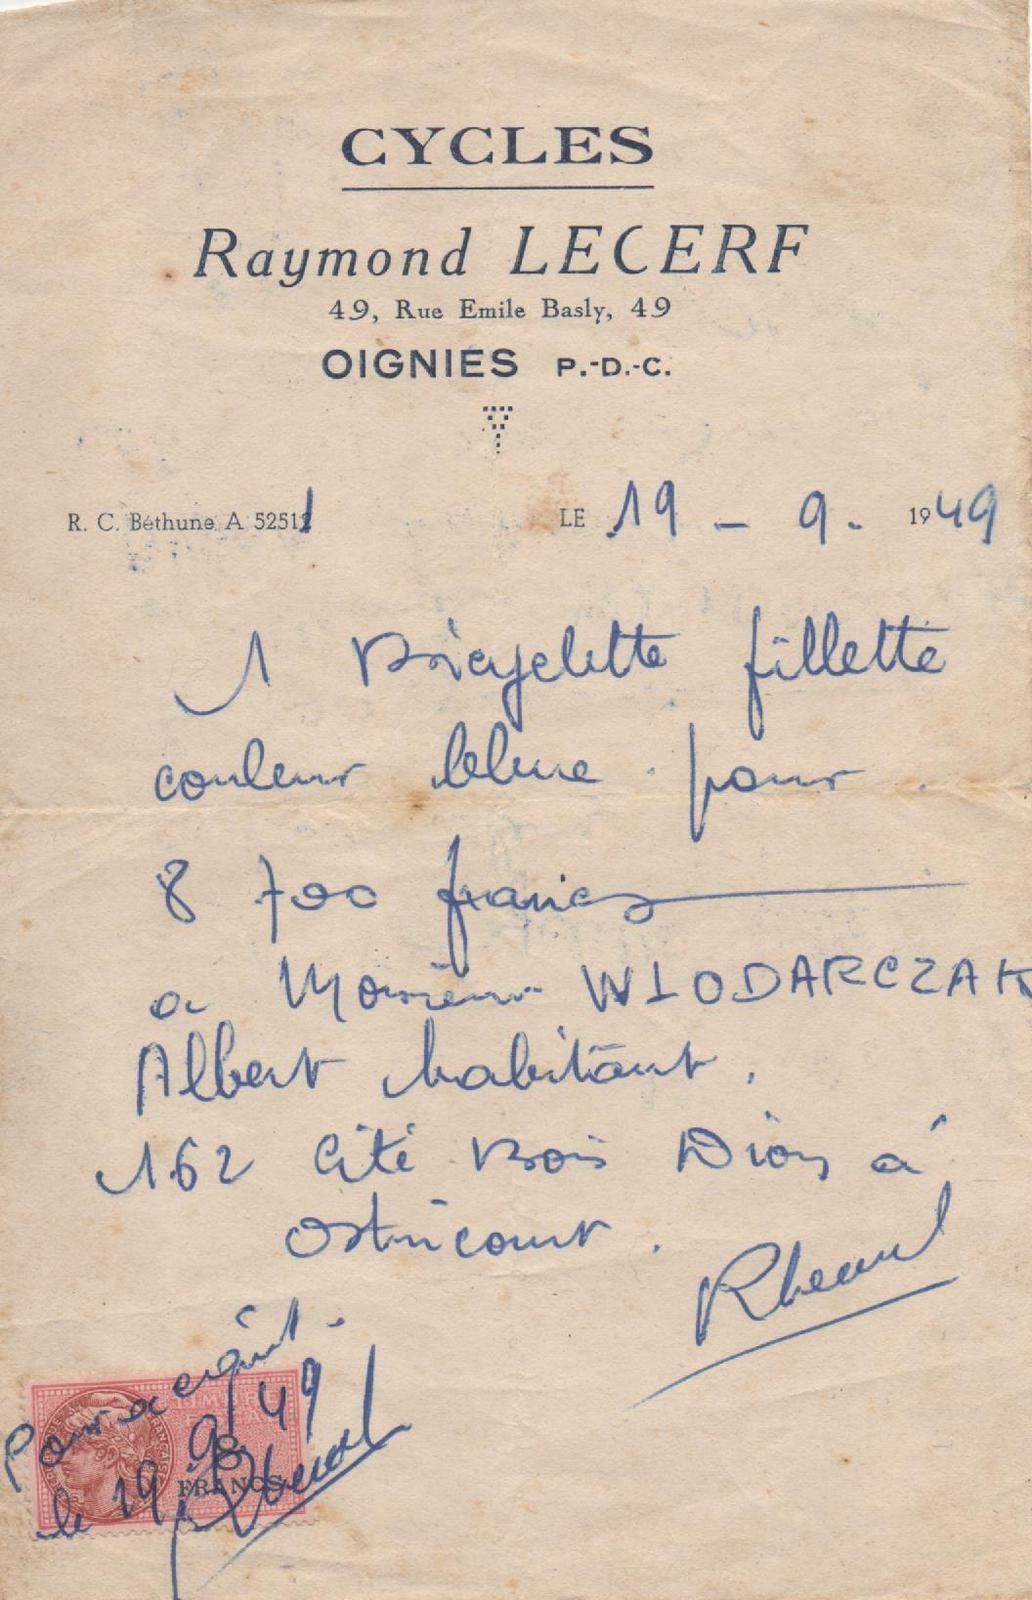 CYCLES
Raymond LECERF
49, Rue Emile Basly, 49
OIGNIES P.-D.-C.
R. C. Béthune A 52511
LE 19 - 9 - 1949
1 Bicyclette fillette
couleur bleue pour
8 700 francs
a Monsieur WLODARCZAK
Albert habitant
162 Cité Bois Dion à
Ostricourt.
Pour acquit.
le 19 9 49
8
FRANCS